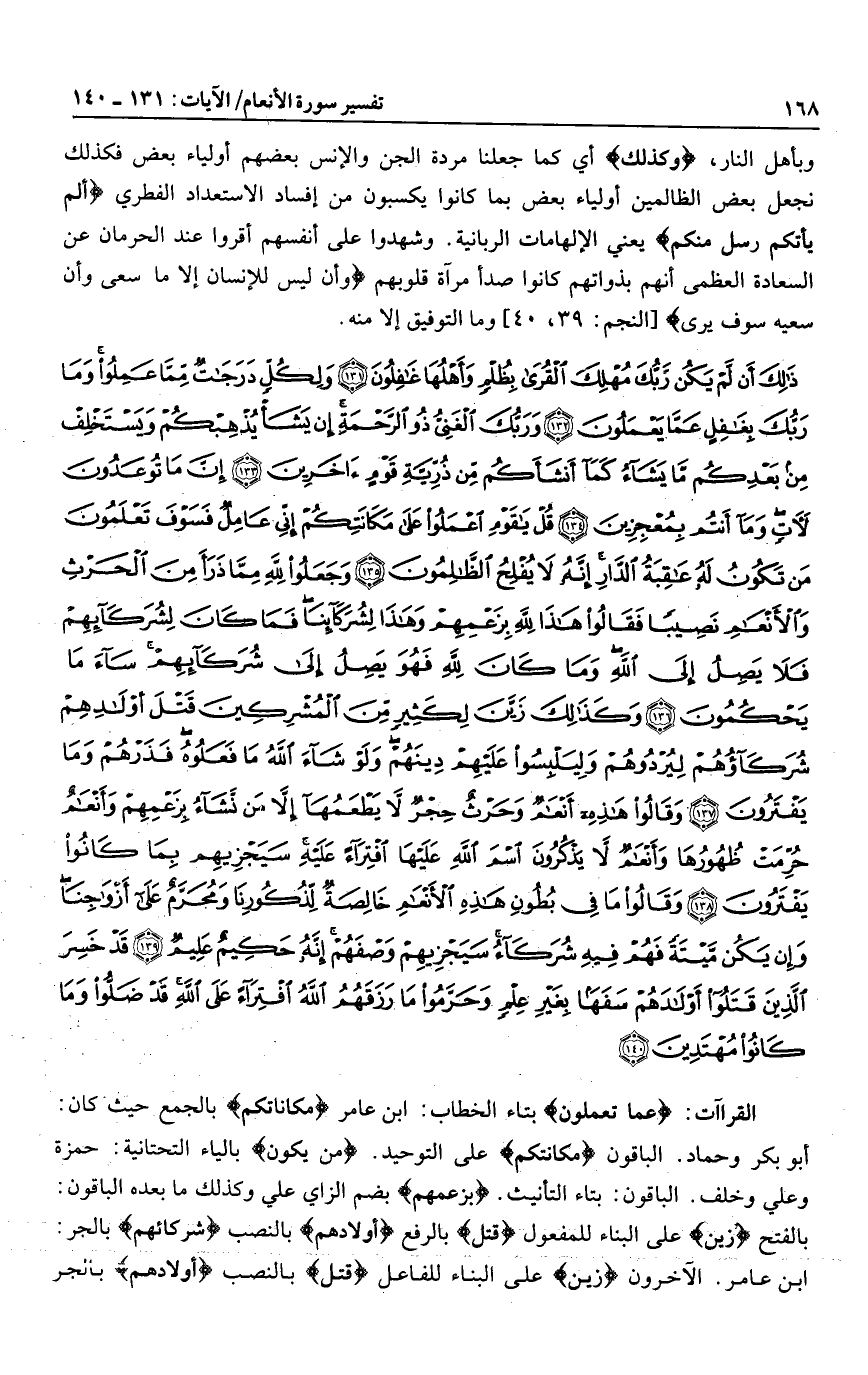 ١٦٨ تفسير سورة الأنعام/ الآيات: ١٣١ - ١٤٠
وبأهل النار، ﴿وكذلك﴾ أي كما جعلنا مردة الجن والإنس بعضهم أولياء بعض فكذلك
نجعل بعض الظالمين أولياء بعض بما كانوا يكسبون من إفساد الاستعداد الفطري ﴿ألم
يأتكم رسل منكم﴾ يعني الإلهامات الربانية. وشهدوا على أنفسهم أقروا عند الحرمان عن
السعادة العظمى أنهم بذواتهم كانوا صدأ مرآة قلوبهم ﴿وأن ليس للإنسان إلا ما سعى وأن
سعيه سوف يرى﴾ [النجم: ٣٩، ٤٠] وما التوفيق إلا منه.
ذَٰلِكَ أَن لَّمْ يَكُن رَّبُّكَ مُهْلِكَ ٱلْقُرَىٰ بِظُلْمٍ وَأَهْلُهَا غَٰفِلُونَ ١٣١ وَلِكُلٍّ دَرَجَٰتٌ مِّمَّا عَمِلُوا۟ۚ وَمَا
رَبُّكَ بِغَٰفِلٍ عَمَّا يَعْمَلُونَ ١٣٢ وَرَبُّكَ ٱلْغَنِىُّ ذُو ٱلرَّحْمَةِۚ إِن يَشَأْ يُذْهِبْكُمْ وَيَسْتَخْلِفْ
مِنۢ بَعْدِكُم مَّا يَشَآءُ كَمَآ أَنشَأَكُم مِّن ذُرِّيَّةِ قَوْمٍ ءَاخَرِينَ ١٣٣ إِنَّ مَا تُوعَدُونَ
لَءَاتٍۖ وَمَآ أَنتُم بِمُعْجِزِينَ ١٣٤ قُلْ يَٰقَوْمِ ٱعْمَلُوا۟ عَلَىٰ مَكَانَتِكُمْ إِنِّى عَامِلٌۖ فَسَوْفَ تَعْلَمُونَ
مَن تَكُونُ لَهُۥ عَٰقِبَةُ ٱلدَّارِۚ إِنَّهُۥ لَا يُفْلِحُ ٱلظَّٰلِمُونَ ١٣٥ وَجَعَلُوا۟ لِلَّهِ مِمَّا ذَرَأَ مِنَ ٱلْحَرْثِ
وَٱلْأَنْعَٰمِ نَصِيبًا فَقَالُوا۟ هَٰذَا لِلَّهِ بِزَعْمِهِمْ وَهَٰذَا لِشُرَكَآئِنَاۖ فَمَا كَانَ لِشُرَكَآئِهِمْ
فَلَا يَصِلُ إِلَى ٱللَّهِۖ وَمَا كَانَ لِلَّهِ فَهُوَ يَصِلُ إِلَىٰ شُرَكَآئِهِمْۗ سَآءَ مَا
يَحْكُمُونَ ١٣٦ وَكَذَٰلِكَ زَيَّنَ لِكَثِيرٍ مِّنَ ٱلْمُشْرِكِينَ قَتْلَ أَوْلَٰدِهِمْ
شُرَكَآؤُهُمْ لِيُرْدُوهُمْ وَلِيَلْبِسُوا۟ عَلَيْهِمْ دِينَهُمْۖ وَلَوْ شَآءَ ٱللَّهُ مَا فَعَلُوهُۖ فَذَرْهُمْ وَمَا
يَفْتَرُونَ ١٣٧ وَقَالُوا۟ هَٰذِهِۦٓ أَنْعَٰمٌ وَحَرْثٌ حِجْرٌ لَّا يَطْعَمُهَآ إِلَّا مَن نَّشَآءُ بِزَعْمِهِمْ وَأَنْعَٰمٌ
حُرِّمَتْ ظُهُورُهَا وَأَنْعَٰمٌ لَّا يَذْكُرُونَ ٱسْمَ ٱللَّهِ عَلَيْهَا ٱفْتِرَآءً عَلَيْهِۚ سَيَجْزِيهِم بِمَا كَانُوا۟
يَفْتَرُونَ ١٣٨ وَقَالُوا۟ مَا فِى بُطُونِ هَٰذِهِ ٱلْأَنْعَٰمِ خَالِصَةٌ لِّذُكُورِنَا وَمُحَرَّمٌ عَلَىٰٓ أَزْوَٰجِنَاۖ
وَإِن يَكُن مَّيْتَةً فَهُمْ فِيهِ شُرَكَآءُۚ سَيَجْزِيهِمْ وَصْفَهُمْۚ إِنَّهُۥ حَكِيمٌ عَلِيمٌ ١٣٩ قَدْ خَسِرَ
ٱلَّذِينَ قَتَلُوٓا۟ أَوْلَٰدَهُمْ سَفَهًۢا بِغَيْرِ عِلْمٍ وَحَرَّمُوا۟ مَا رَزَقَهُمُ ٱللَّهُ ٱفْتِرَآءً عَلَى ٱللَّهِۚ قَدْ ضَلُّوا۟ وَمَا
كَانُوا۟ مُهْتَدِينَ ١٤٠
القراآت: ﴿عما تعملون﴾ بتاء الخطاب: ابن عامر ﴿مكاناتكم﴾ بالجمع حيث كان:
أبو بكر وحماد. الباقون ﴿مكانتكم﴾ على التوحيد. ﴿من يكون﴾ بالياء التحتانية: حمزة
وعلي وخلف. الباقون: بتاء التأنيث. ﴿بزعمهم﴾ بضم الزاي علي وكذلك ما بعده الباقون:
بالفتح ﴿زين﴾ على البناء للمفعول ﴿قتل﴾ بالرفع ﴿أولادهم﴾ بالنصب ﴿شركائهم﴾ بالجر:
ابن عامر. الآخرون ﴿زين﴾ على البناء للفاعل ﴿قتل﴾ بالنصب ﴿أولادهم﴾ بالجر